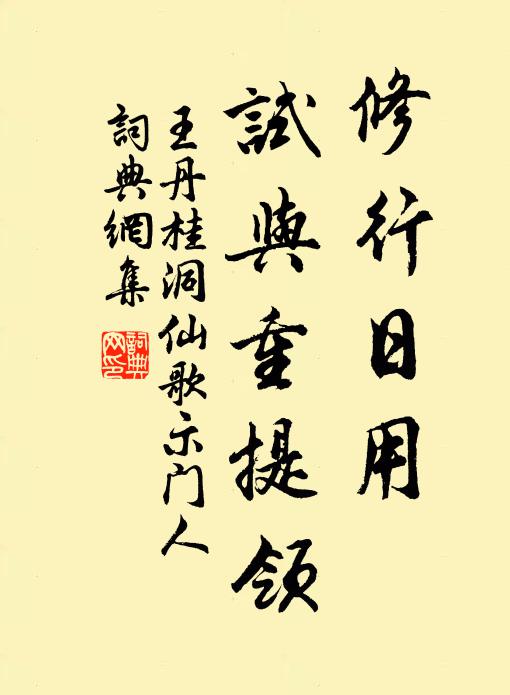 修行日用
試與重提領
王丹桂洞仙歌示門人
詞典網集
詞典
网印